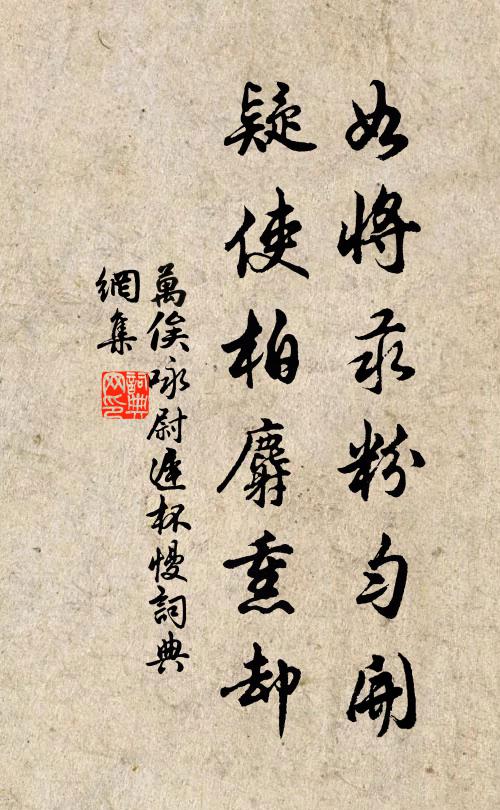 如將汞粉勻開
疑使柏麝熏却
萬俟咏尉遲杯慢詞典
網集
詞典
网印